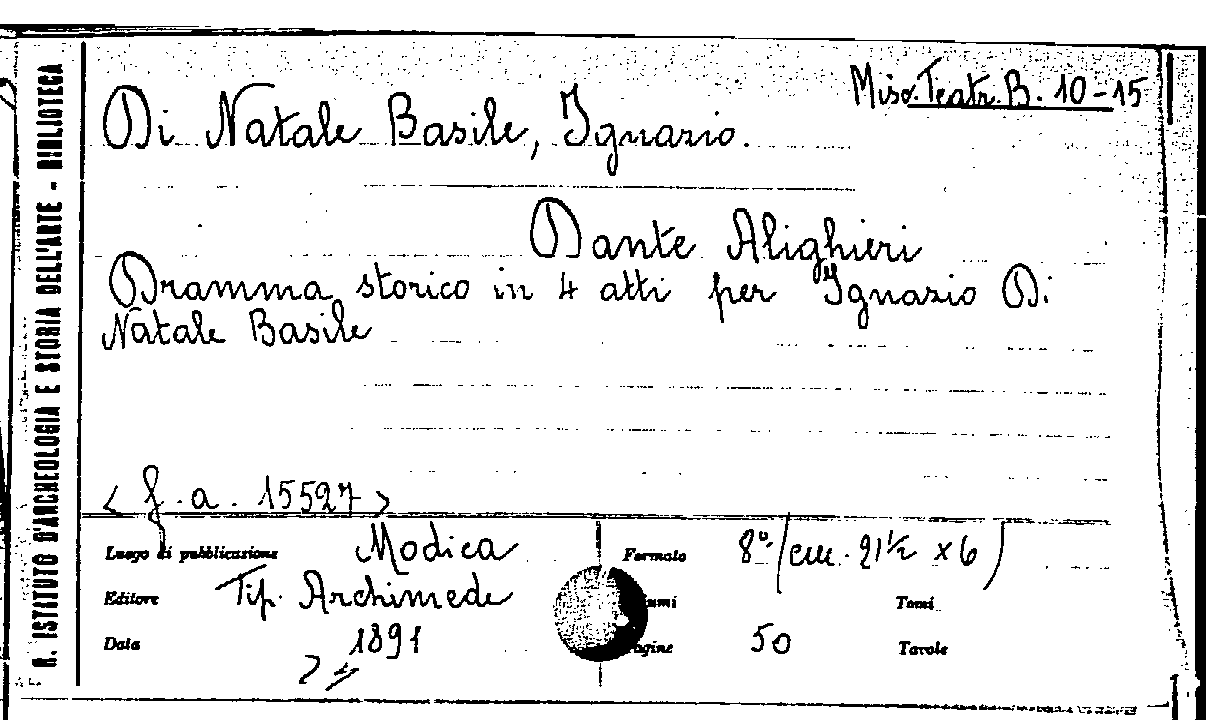 Misc. Teatr. B. 10-15
Di Natale Basile, Ignazio.
Dante Alighieri
Dramma storico in 4 atti per Ignazio Di
Natale Basile
< f. a. 15527 >
Luogo di pubblicazione Modica
Formato 8° (cm. 21½ x 6)
Editore Tip. Archimede
Tomi
Data 1891
50
Tavole
R. ISTITUTO D'ARCHEOLOGIA E STORIA DELL'ARTE - BIBLIOTECA